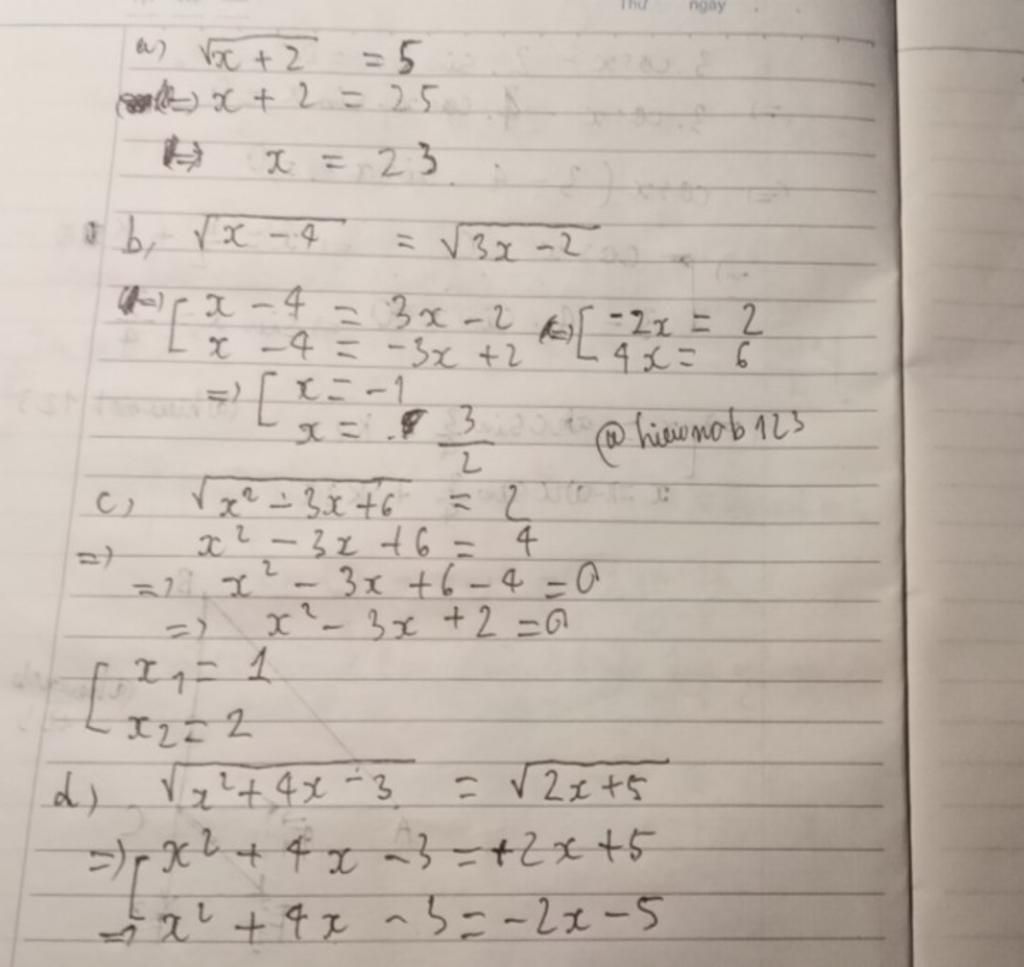 Thứ ngày
a) √x + 2 = 5
(=) x + 2 = 25
(=) x = 23
b, √x - 4 = √3x - 2
(=) [ x - 4 = 3x - 2 (=) [ -2x = 2
x - 4 = -3x + 2 4x = 6
=) [ x = -1
x = 3/2 @hieunob123
c, √x² - 3x + 6 = 2
=) x² - 3x + 6 = 4
=) x² - 3x + 6 - 4 = 0
=) x² - 3x + 2 = 0
[ x₁ = 1
x₂ = 2
d) √x² + 4x - 3 = √2x + 5
=) [ x² + 4x - 3 = +2x + 5
=) x² + 4x - 3 = -2x - 5